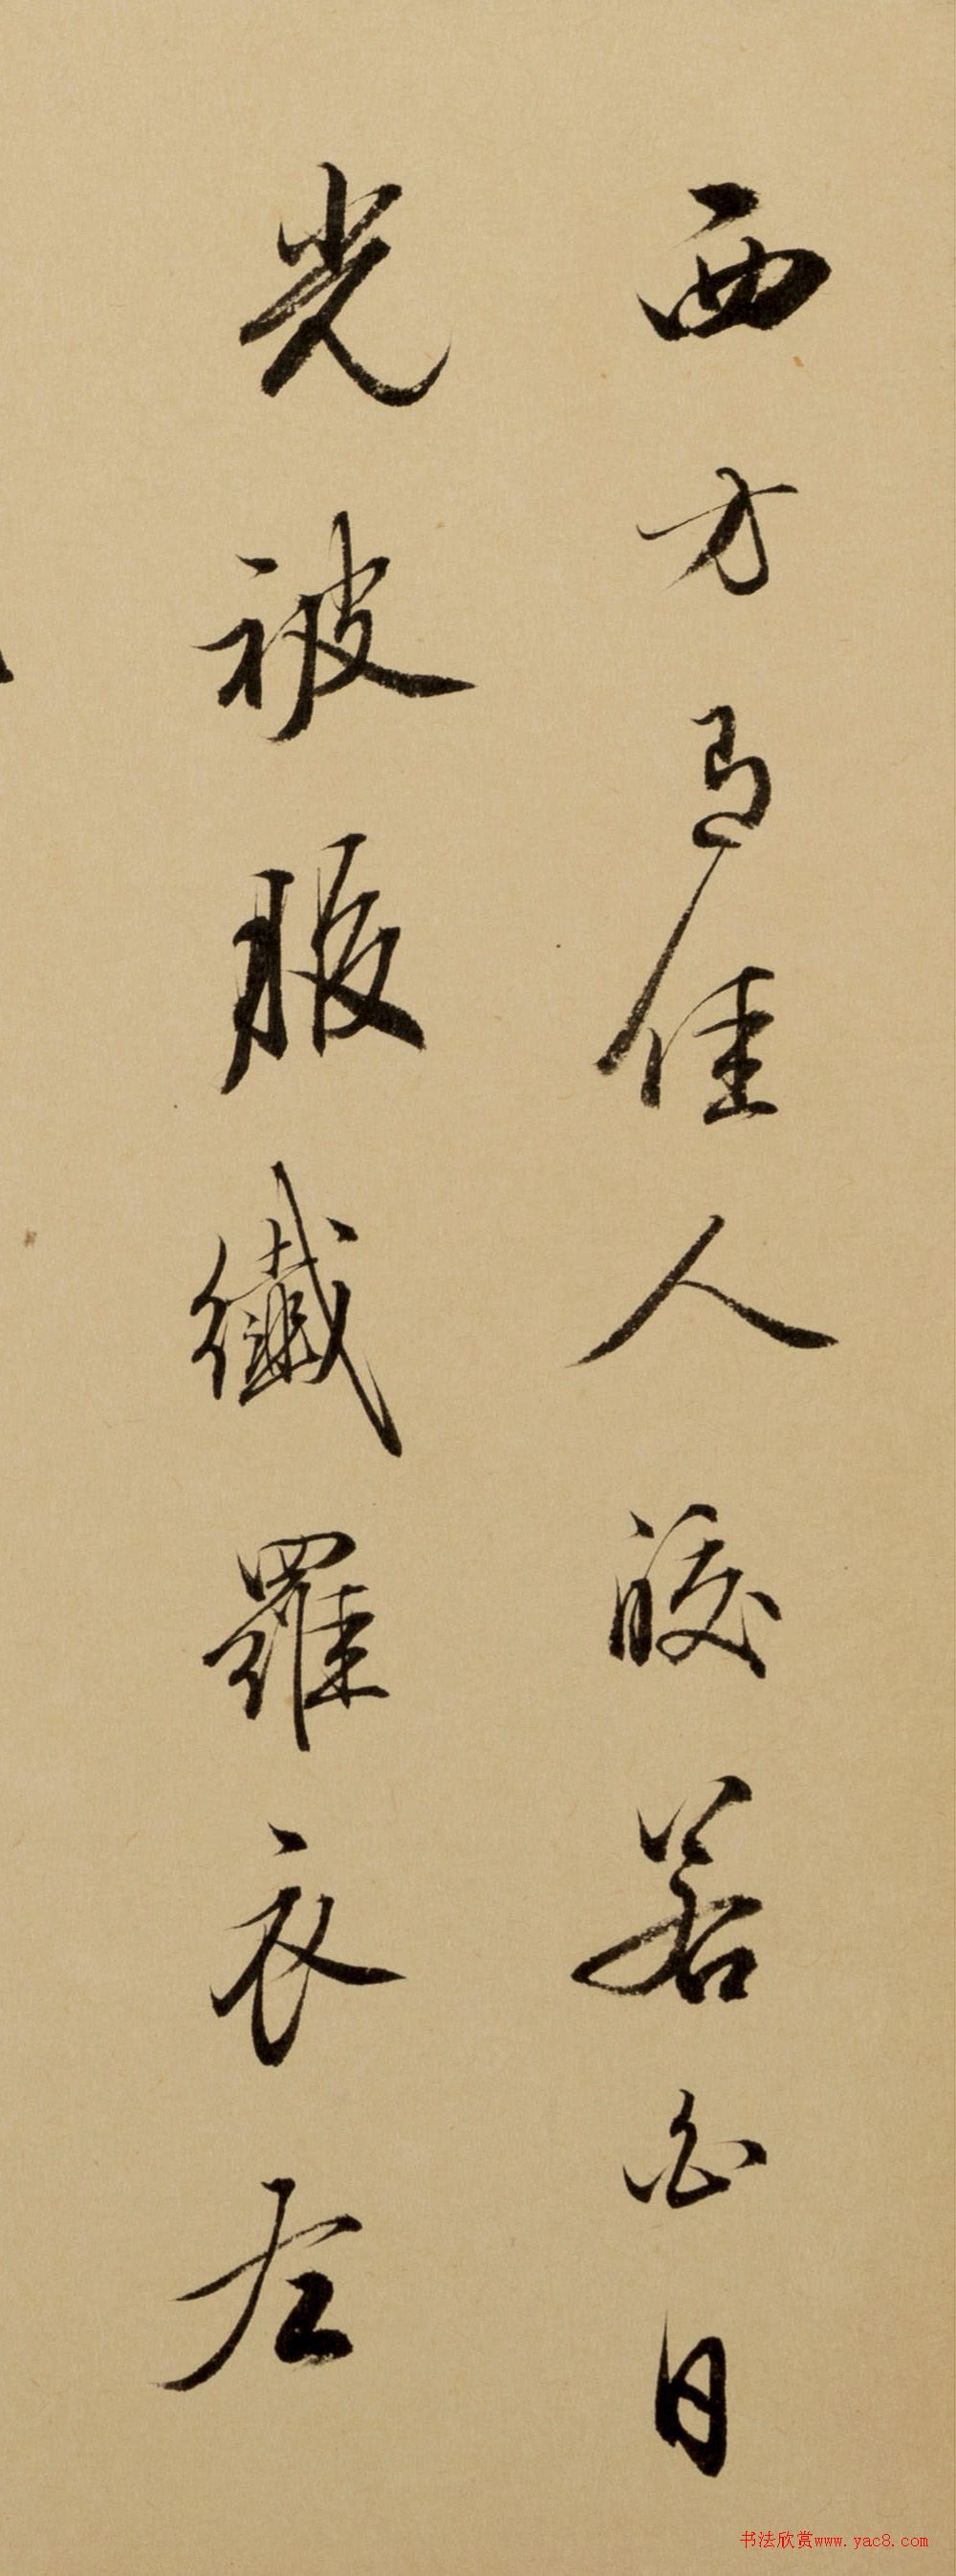 西方有佳人皎若白日
光被服纖羅衣左
书法欣赏www.yac8.com